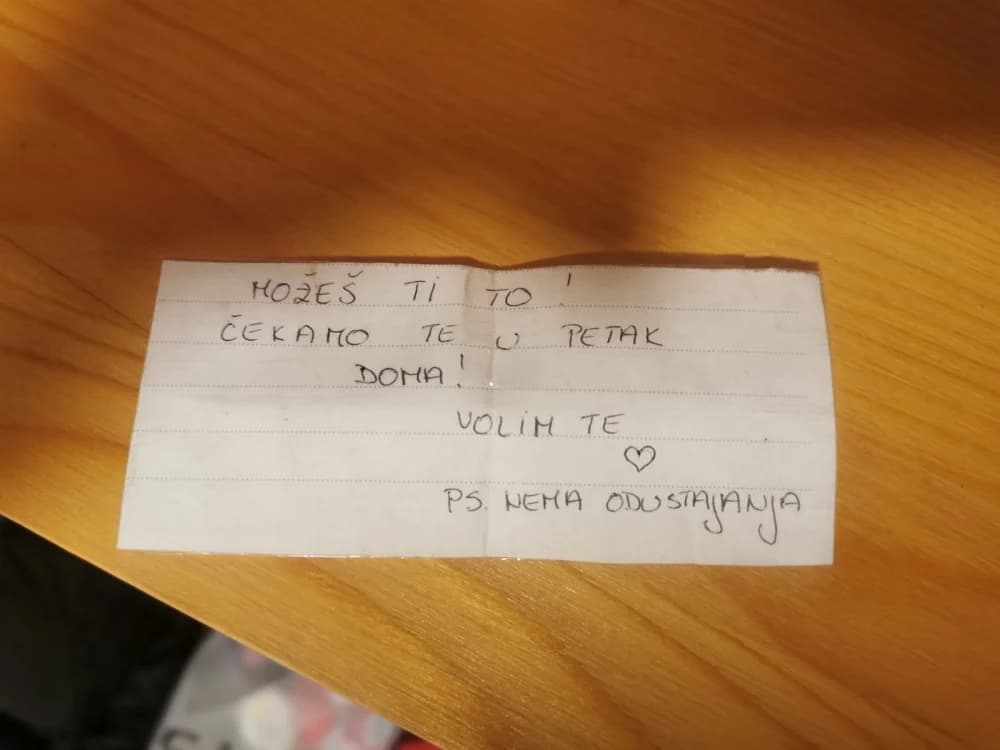 MOŽEŠ TI TO!
ČEKAMO TE U PETAK
DOMA!
VOLIM TE
♡
PS. NEMA ODUSTAJANJA